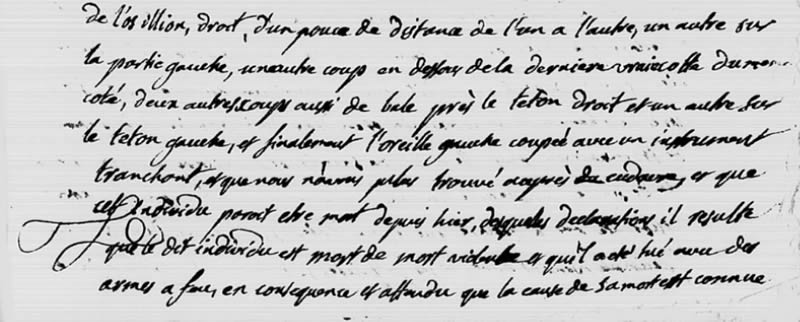 de l'os illion, droit, d'un pouce de distance de l'un a l'autre, un autre sur
la partie gauche, un autre coup en dessous de la derniere vraie cotte du
coté, deux autres coups aussi de bale près le teton droit et un autre sur
le teton gauche, et finalement l'oreille gauche coupée avec un instrument
tranchant, et que nous n'avons plus trouvé auprès du cadavre, et que
cet individu paroit etre mort depuis hier, desqueles declarations il resulte
que le dit individu est mort de mort violente et qu'il a eté tué avec des
armes a feu, en consequence et attendu que la cause de sa mort est connue